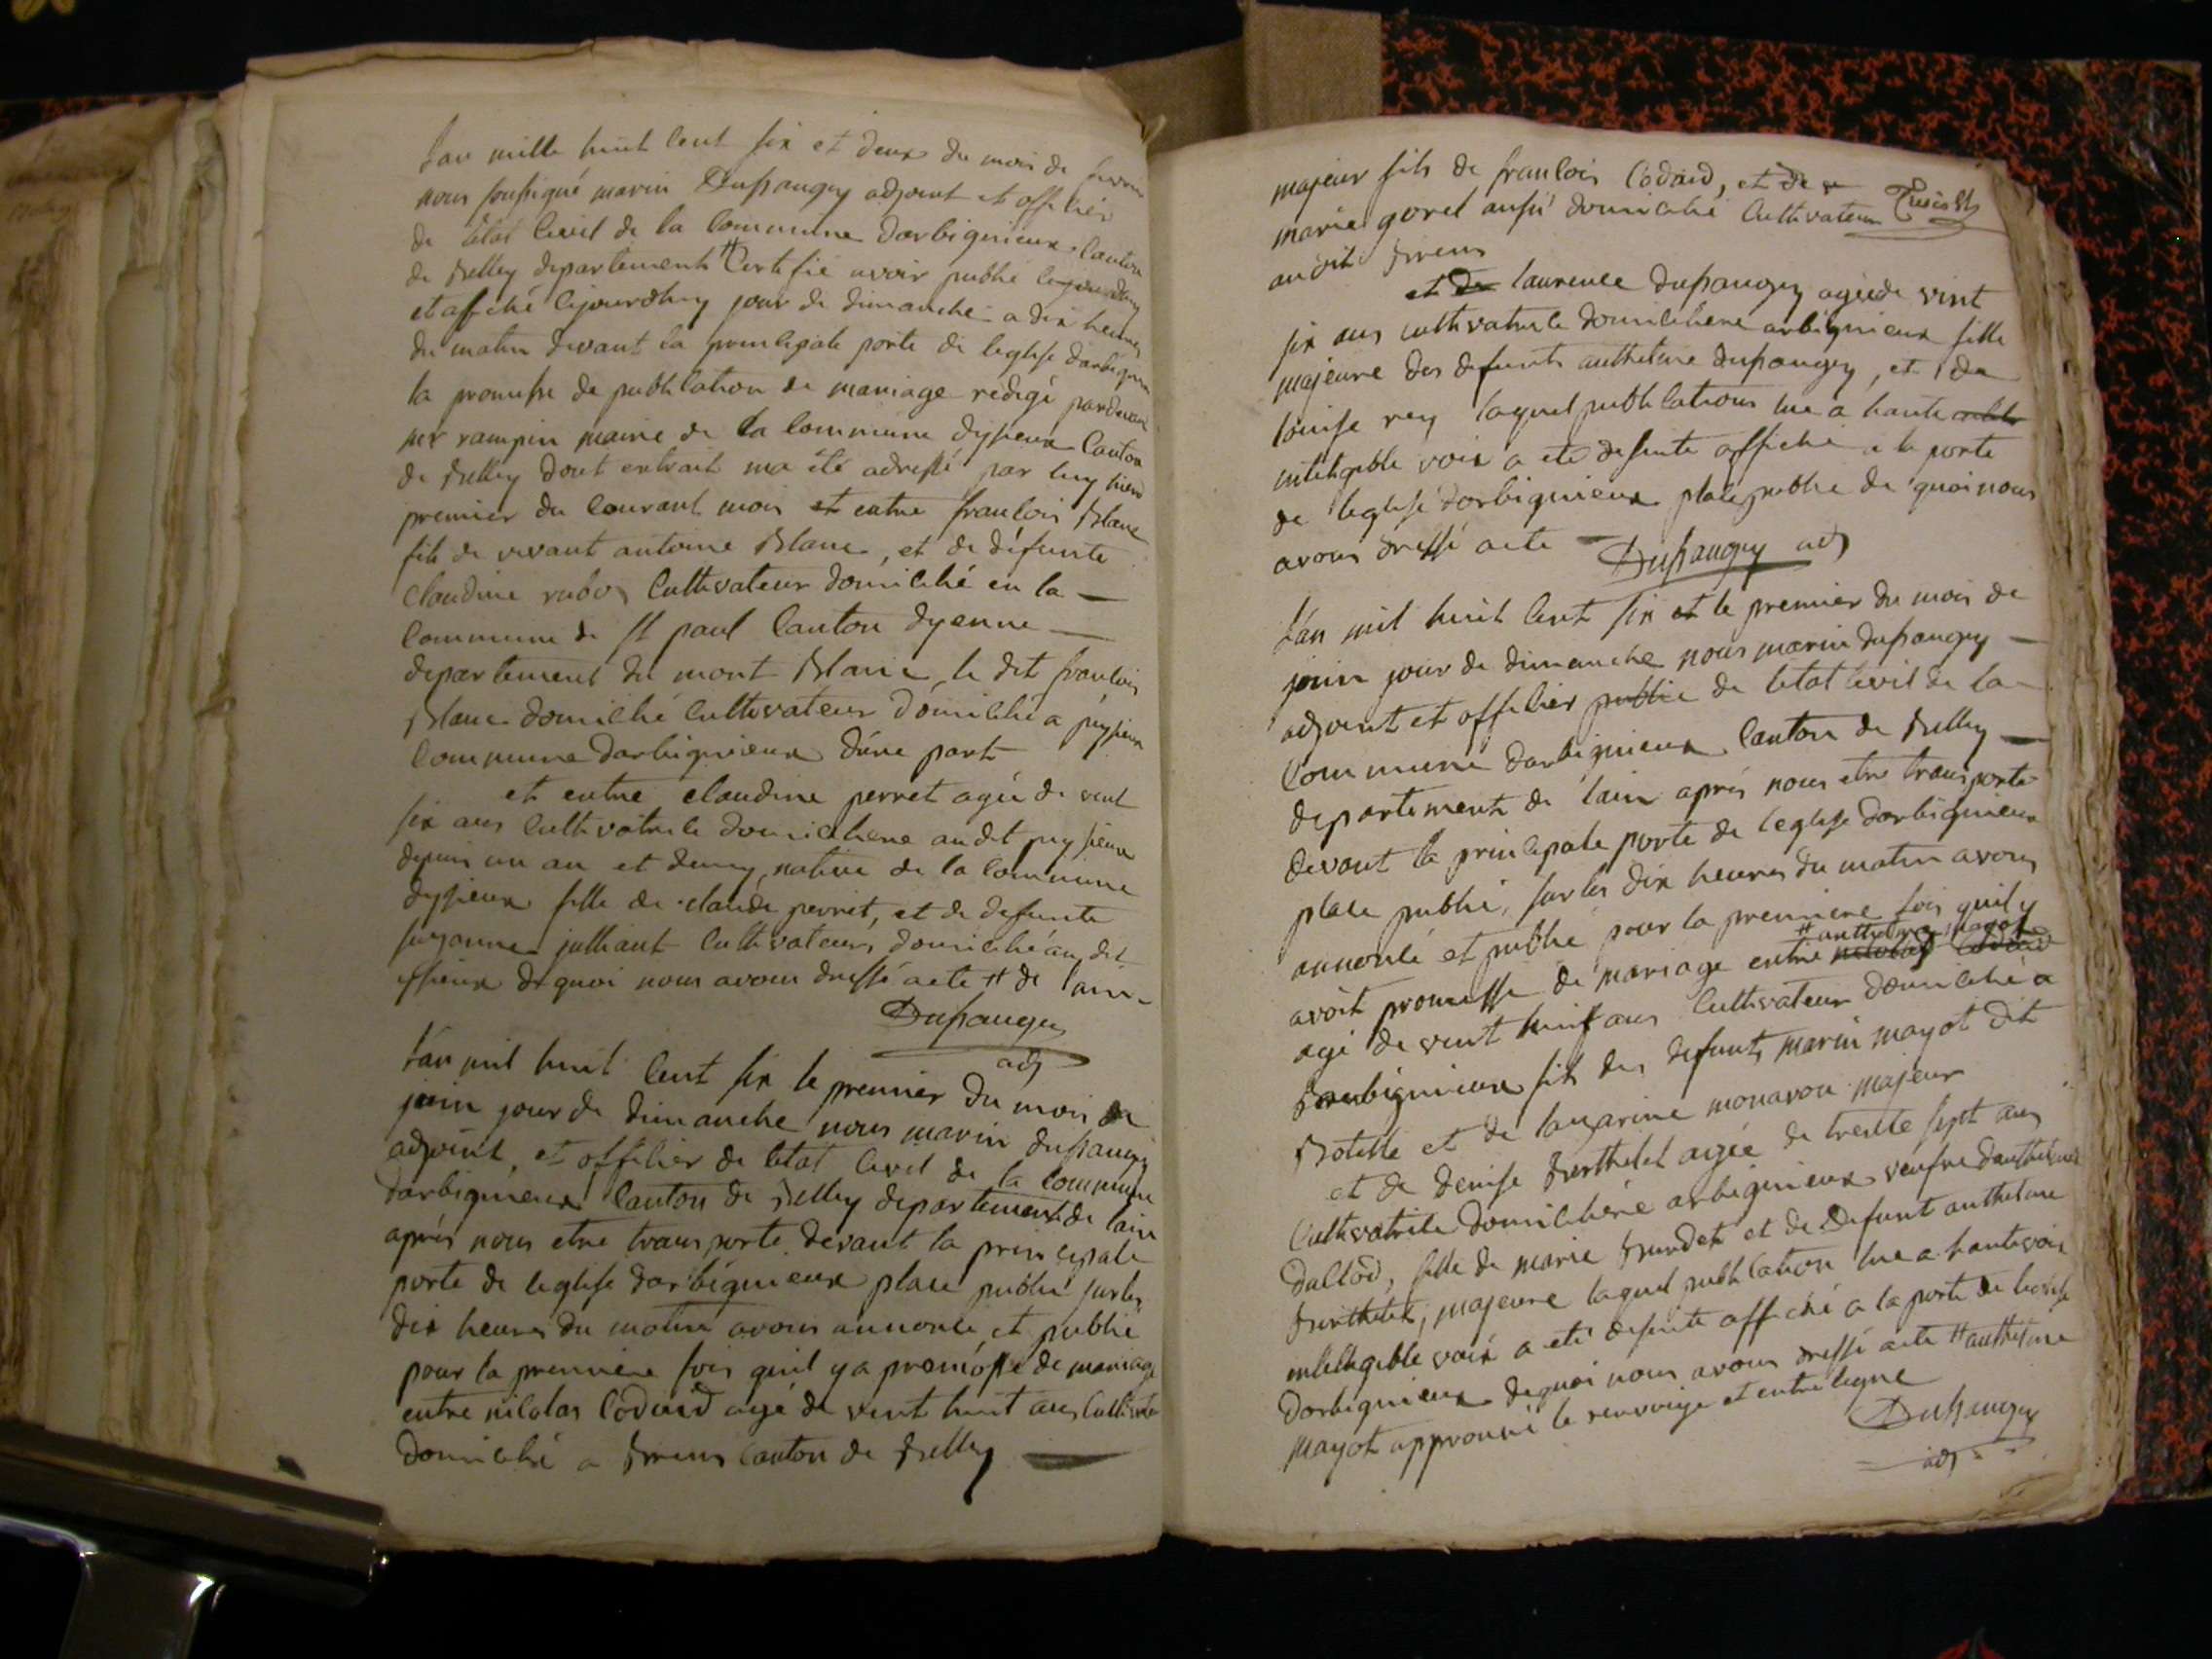 Lan mille huit cent six et deux du mois de fevrier
nous soussigné marin Dupaugey adjoint et officier
de letat civil de la commune darbignieux canton
de Belley departement # certifie avoir publié cejourdhuy
et affiché cejourdhuy jour de dimanche a dix heures
du matin devant la principale porte de leglise darbignieu
la promesse de publication de mariage redigé pardevant
mr rampin maire de la commune dyzieux canton
de Belley dont extrait ma été adressé par luy hierd
premier du courant mois et entre francois Blanc
fils de vivant antoine Blanc, et de défunte
claudine rubod cultivateur domicilié en la —
commune de st paul canton dyenne —
departement du mont Blanc, le dit francois
Blanc domicilié cultivateur domicilié a peyzieux
commune darbignieux dune part
et entre claudine perret agée de vint
six ans cultivatrice domiciliere au dit peyzieux
depuis un an et demy, native de la commune
dyzieux fille de claude perret, et de defunte
suzanne julliant cultivateurs domicilié au dit
yzieux de quoi nous avons dressé acte # de lain
Dupaugey
adj
Lan mil huit cent six le premier du mois de
juin jour de dimanche nous marin dupaugey
adjoint, et officier de letat civil de la commune
darbignieux canton de Belley departement de lain
après nous etre transporte devant la principale
porte de leglise darbignieux place public sur les
dix heures du matin avons annoncé et publié
pour la premiere fois quil y a promesse de mariage
entre nicolas Codaid agé de vint huit ans cultivate
domicilié a Brens canton de Belley —
majeur fils de francois Codaid, et de
marie gorel aussi domicilié cultivateur
audit Brens
et de laurence dupaugey agée de vint
six ans cultivatrice domiciliere arbignieux fille
majeure des defunts anthelme dupaugey, et de
louise rey laquel publications lue a haute
inteligible voix a eté desuite affiché a la porte
de leglise darbignieux place public de quoi nous
avons dressé acte — Dupaugey adj
Lan mil huit cent six et le premier du mois de
juin jour de dimanche nous marin dupaugey —
adjoint et officier public de letat civil de la —
commune darbignieux canton de Belley —
departement de lain après nous etre transporte
devant la principale porte de leglise darbignieux
place public, sur les dix heures du matin avons
annoncé et publié pour la premiere fois quil y
# anthelme mayot
avoit promesse de mariage entre nicolas Codaid
agé de vint huit ans cultivateur domicilié a
darbignieux fils des defunts marin mayot dit
Botille et de lazarine monavon majeur
et de denise Berthelet agée de trente sept ans
cultivatrice domiciliere arbignieux veufve danthelme
dallod, fille de marie Burdet et de defunt anthelme
Berthelet, majeure laquel publication lue a hautevoix
intelligible voix a eté desuite affiché a la porte de leglise
darbignieux dequoi nous avons dressé acte # anthelme
mayot approuvé le renvoye et entre ligne
Dupaugey
adj